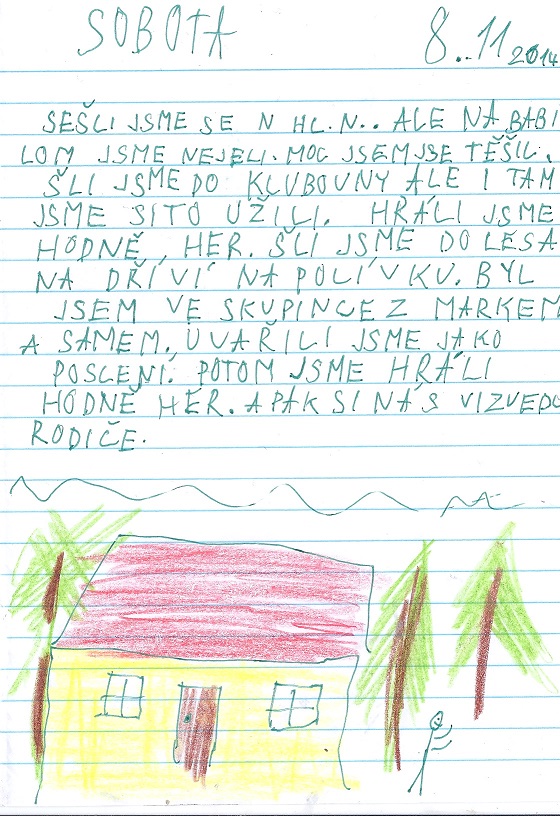 SOBOTA 8..11 2014
SEŠLI JSME SE N HL.N.. ALE NA BABI
LOM JSME NEJELI. MOC JSEM JSE TĚŠIL.
ŠLI JSME DO KLUBOVNY ALE I TAM
JSME SITO UŽILI. HRÁLI JSME
HODNĚ, HER. ŠLI JSME DO LESA
NA DŘÍVÍ NA POLÍVKU. BYL
JSEM VE SKUPINCE Z MARKEM
A SAMEM. UVAŘILI JSME JAKO
POSLENÍ. POTOM JSME HRÁLI
HODNĚ HER. A PAK SI NÁS VIZVEDL
RODIČE.